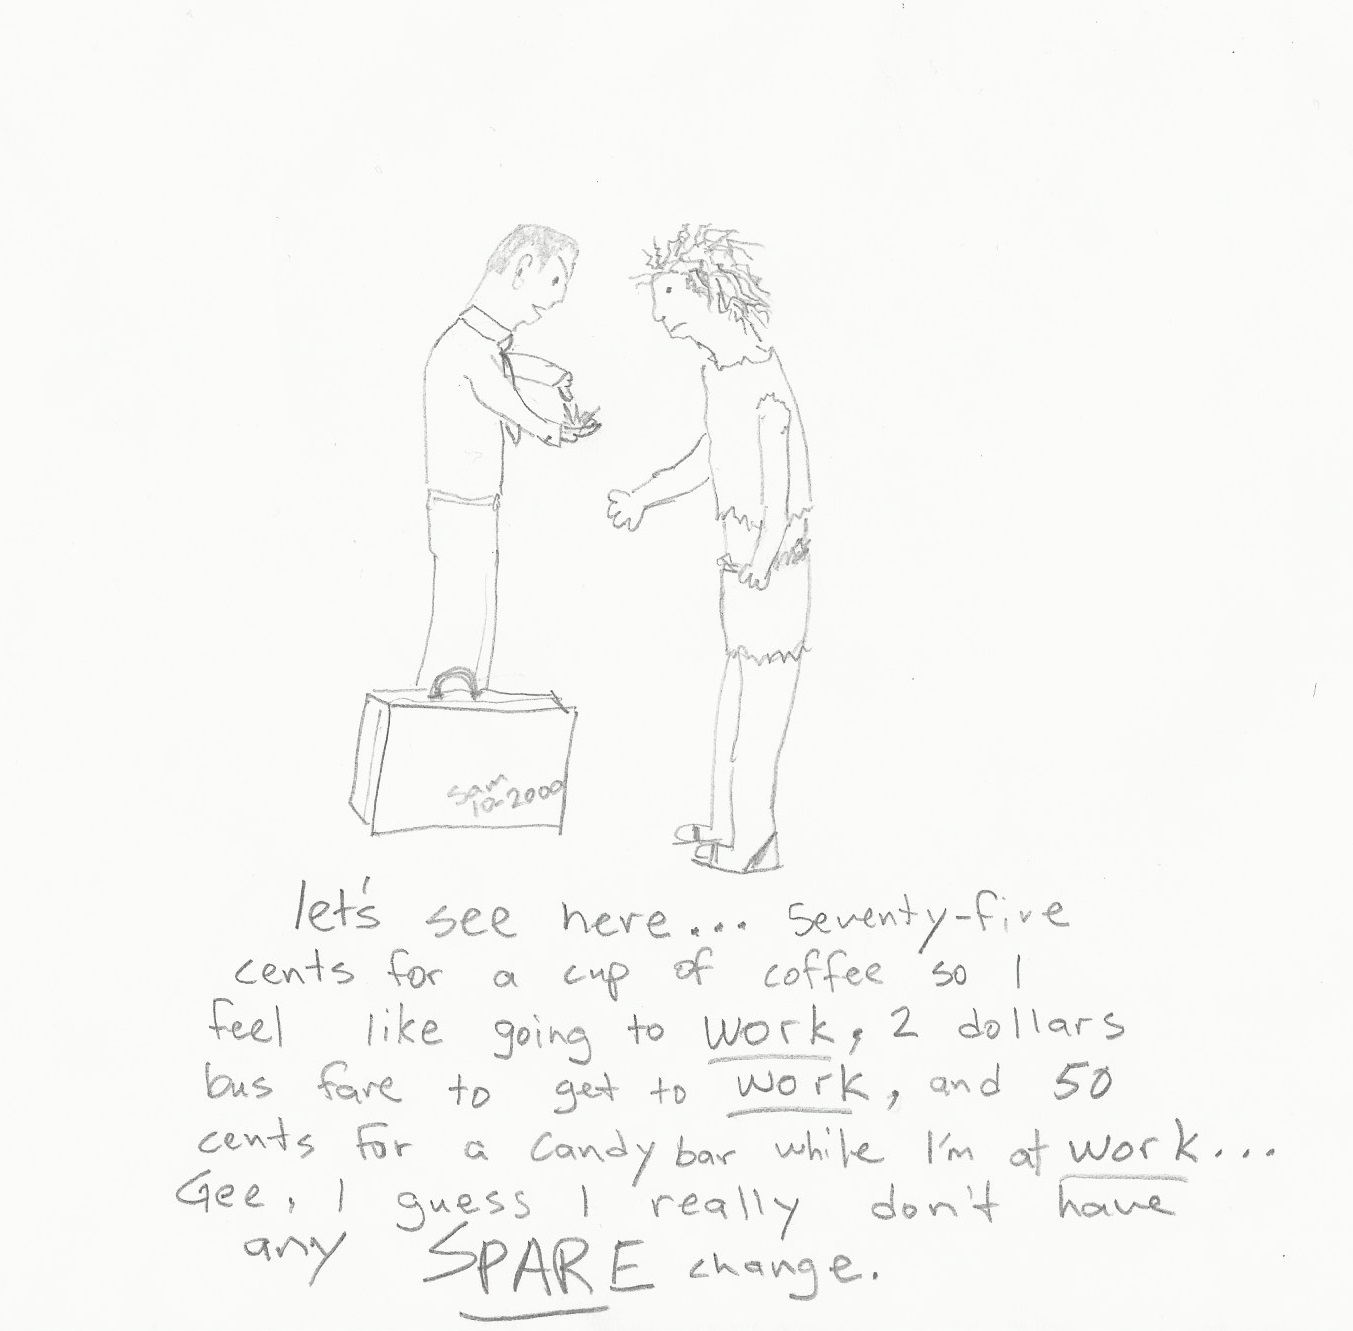 Sam
10-2000
let's see here... Seventy-five
cents for a cup of coffee so I
feel like going to work, 2 dollars
bus fare to get to work, and 50
cents for a candy bar while I'm at work...
Gee, I guess I really don't have
any SPARE change.